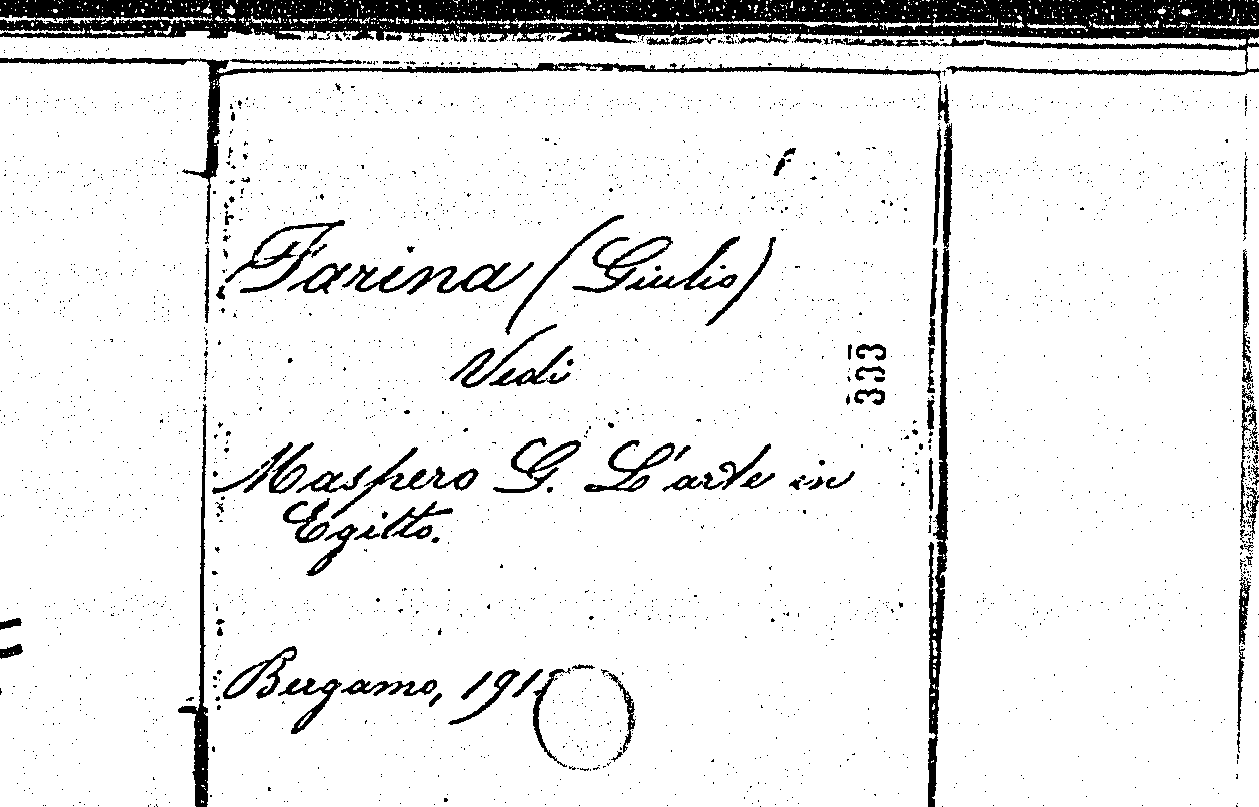 Farina (Giulio)
Vedi
333
Maspero G. L'arte in
Egitto.
Bergamo,